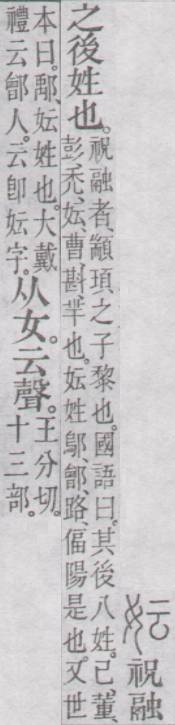 妘 祝融
之後姓也。
祝融者、顓頊之子黎也。國語曰。其後八姓。己、董、
彭、禿、妘、曹、斟、羋也。妘姓鄔、鄶、路、偪陽是也。又世
本曰。鄅、妘姓也。大戴
禮云鄶人。云卽妘字。
从女。云聲。
王分切。
十三部。